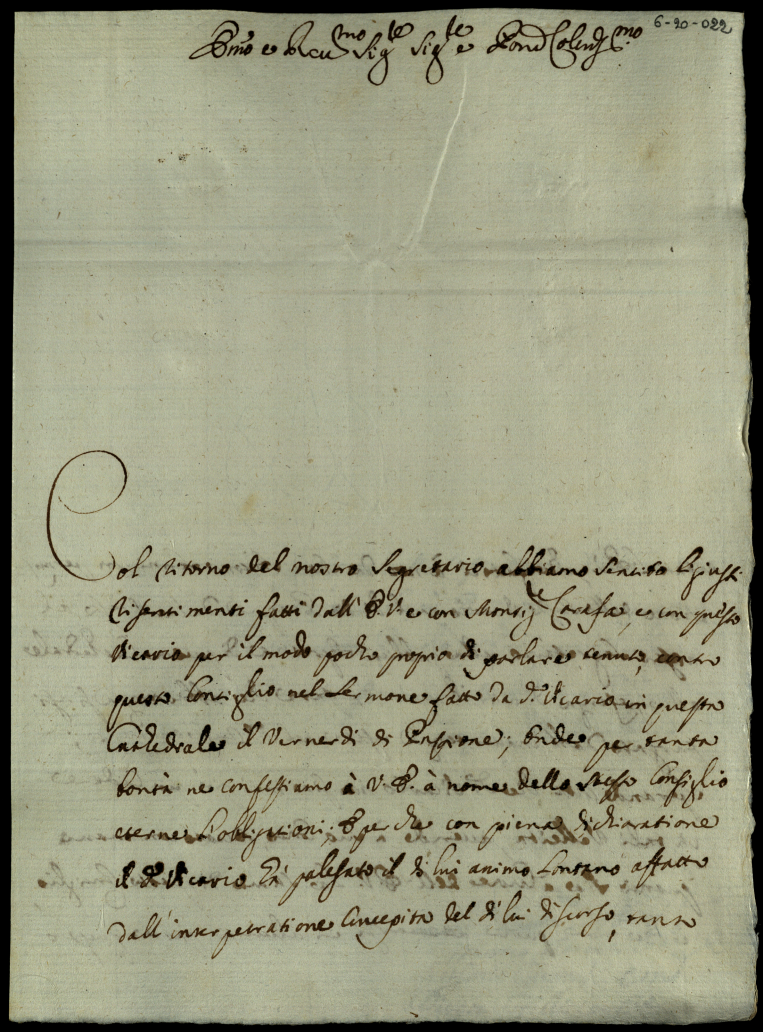 6-20-022
Emo e Rcumo Sigre Sigre Pnd Colendmo
Col ritorno del nostro Segretario abbiamo sentito li giusti
risentimenti fatti dall' E.V. e con Monsigre Carafa, e con questo
Vicario per il modo poco proprio di parlare tenuto contro
questo Consiglio nel Sermone fatto da do Vicario in questa
Cattedrale il Vernerdi di Passione; onde per tanta
bontà ne confessiamo à V.E. à nome dello stesso Consiglio
eterne l'obligationi; E perche con piena dichiaratione
il do Vicario hà palesato il di lui animo lontano affatto
dall'interpetratione concepita del di lui discorso, tanto